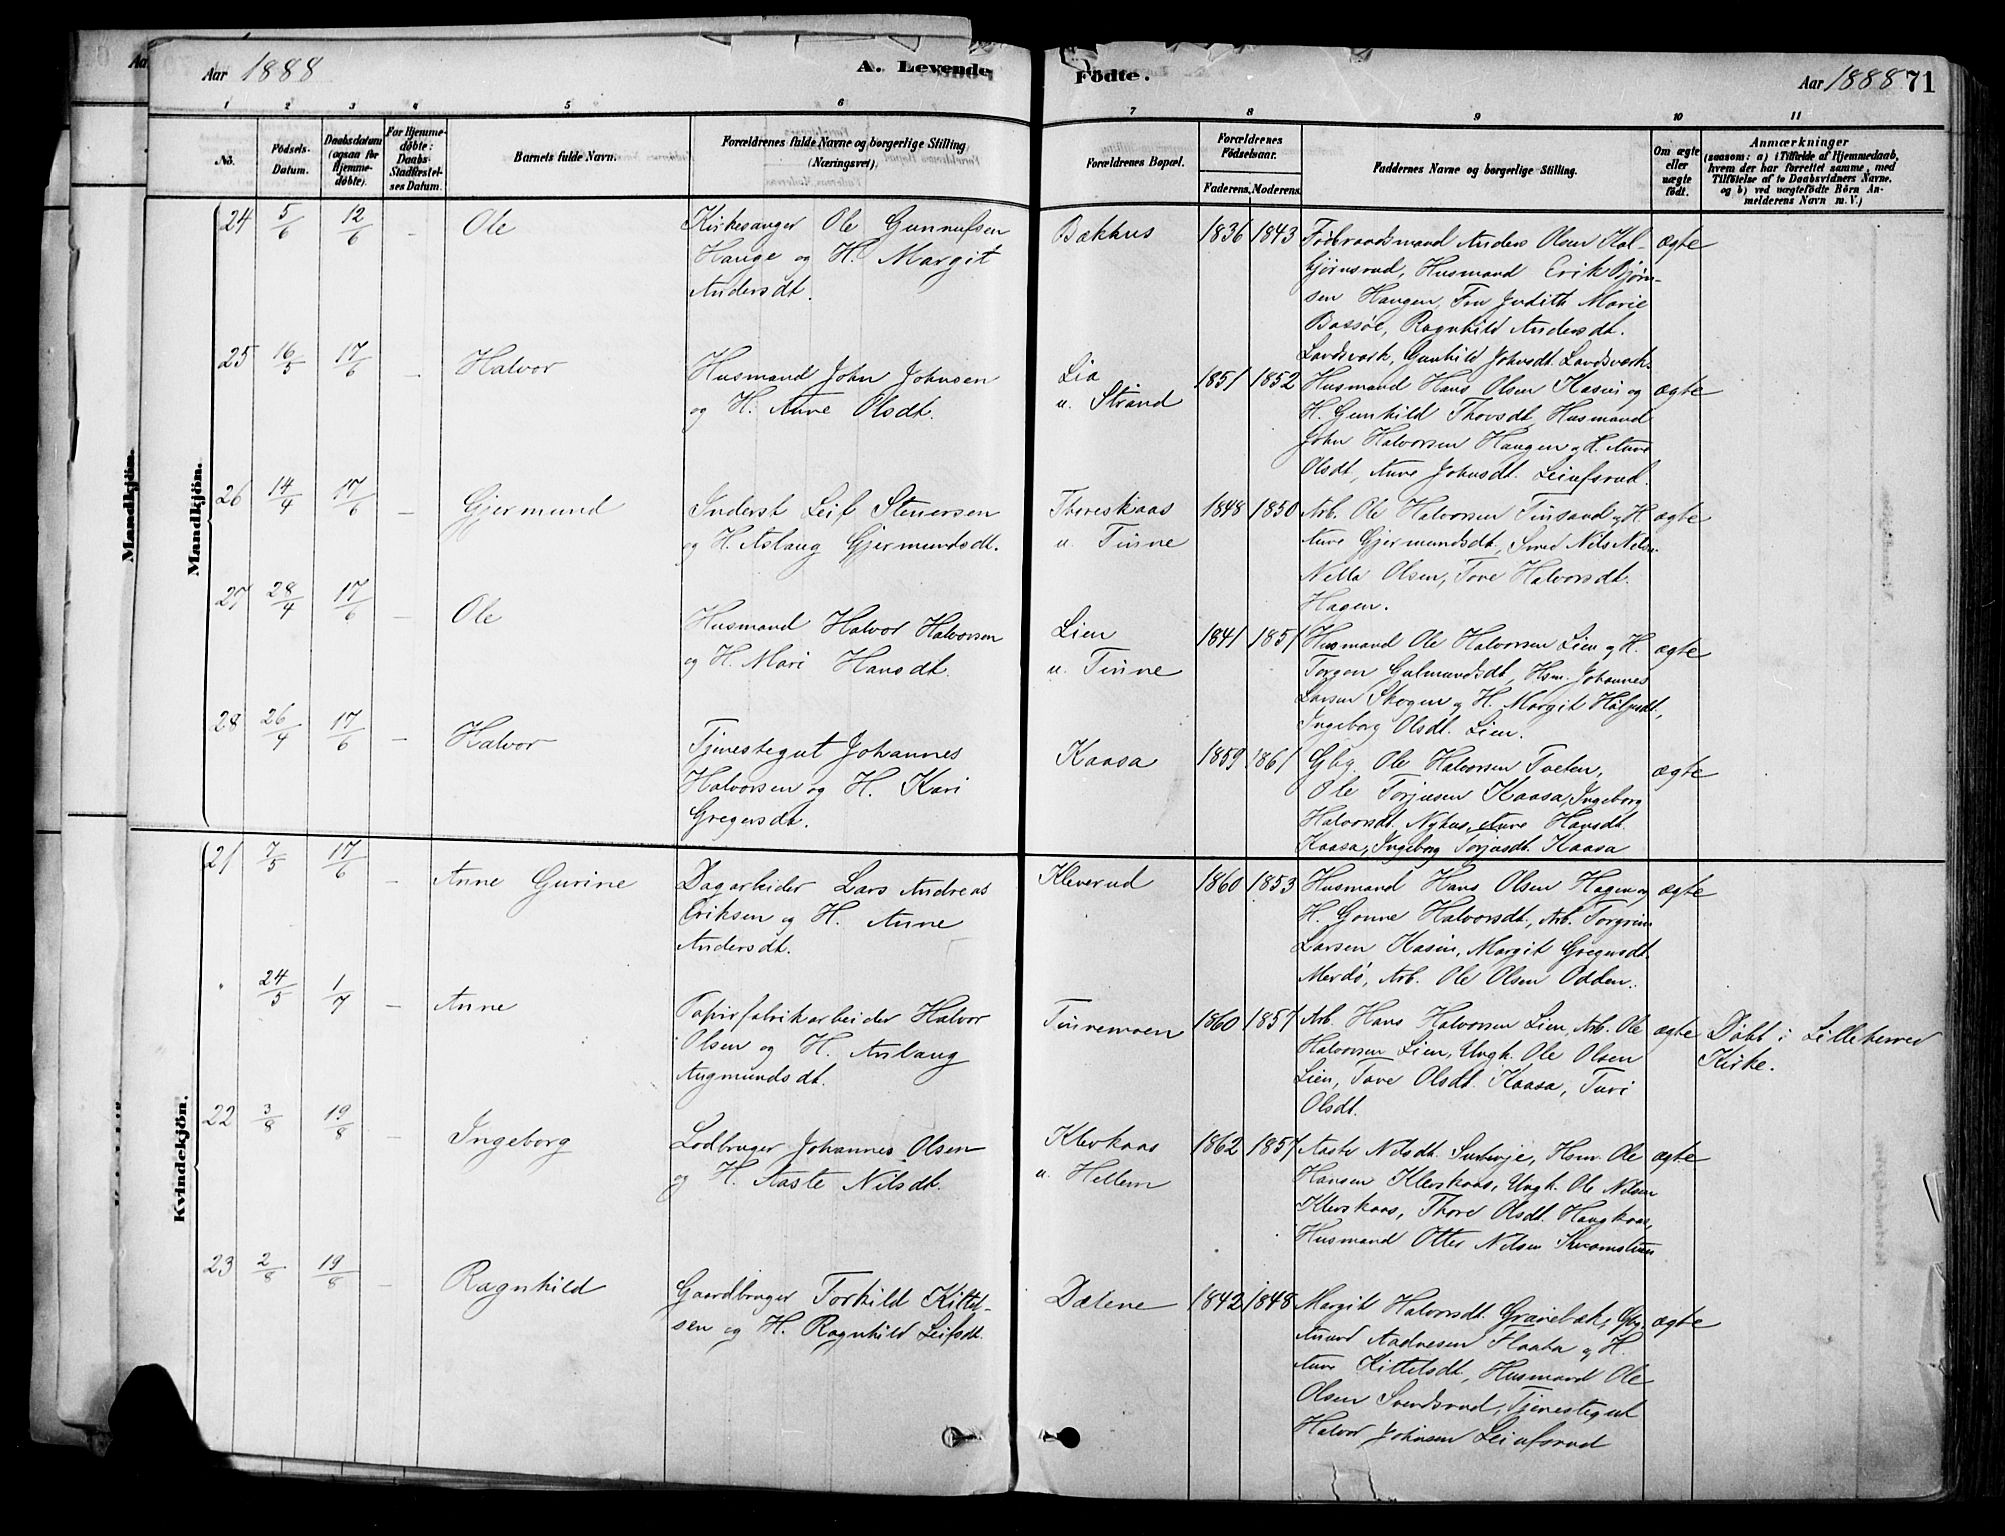 Aar 1888
A. Levende Födte.
Aar 1888 71
1 2 3 4 5 6 7 8 9 10 11
No.
Födsels-
Datum.
Daabsdatum
(ogsaa för
Hjemme-
döbte).
For Hjemme-
döbte:
Daabs-
Stadfæstel-
ses Datum.
Barnets fulde Navn.
Forældrenes fulde Navne og borgerlige Stilling
(Næringsvei).
Forældrenes Bopæl.
Forældrenes
Födselsaar.
Faderens. Moderens.
Faddernes Navne og borgerlige Stilling.
Om ægte
eller
uægte
födt.
Anmærkninger
(saasom: a) i Tilfælde af Hjemmedaab,
hvem der har forrettet samme, med
Tilföielse af to Daabsvidners Navne,
og b) ved uægtefödte Börn An-
melderens Navn m. V.)
Mandkjön.
Mandkjön.
24 5/6 12/6 – Ole
Kirkesanger Ole Gunnufsen
Hauge og H. Margit
Andersdt.
Bækhus
1836 1843
Föderaadsmand Anders Olsen Kal-
bjørnsrud, Husmand Erik Bjørn-
sen Haugen, Fru Judith Marie
Bassøe, Ragnhild Andersdt.
Landsverk, Gunhild Johnsdt. Landsverk.
ægte
25 16/5 17/6 – Halvor
Husmand John Johnsen
og H. Anne Olsdt.
Lia
u. Strand
1851 1852
Husmand Hans Olsen Kasin og
H. Gunhild Thovsdt, Husmand
John Halvorsen Haugen og H. Anne
Olsdt, Anne Johnsdt. Leiufsrud.
ægte
26 14/4 17/6 – Gjermund
Inderst Leif Stenersen
og H. Aslaug Gjermundsdt.
Thoreskaas
u. Tinne
1848 1850
Arb. Ole Halvorsen Tinsand og H.
Anne Gjermundsdt, Smed Nils Nilsen
Nella Olsen, Tove Halvorsdt.
Hagen.
ægte
27 28/4 17/6 – Ole
Husmand Halvor Halvorsen
og H. Mari Hansdt.
Lien
u. Tinne
1841 1851
Husmand Ole Halvorsen Lien og H.
Torgon Gulmundsdt, Hsm. Johannes
Larsen Skogen og H. Margit Høljesdt,
Ingeborg Olsdt. Lien.
ægte
28 26/4 17/6 – Halvor
Tjenestegut Johannes
Halvorsen og H. Kari
Gregersdt.
Kaasa
1859 1861
Gbg. Ole Halvorsen Tveten,
Ole Torjusen Kaasa, Ingeborg
Halvorsdt. Nyhus, Anne Hansdt.
Kaasa, Ingeborg Torjusdt. Kaasa
ægte
Kvindekjön.
21 7/5 17/6 – Anne Gurine
Dagarbeider Lars Andreas
Eriksen og H. Anne
Andersdt.
Kleverud
1860 1853
Husmand Hans Olsen Hagen og
H. Gonne Halvorsdt, Arb. Torgrim
Larsen Kasin, Margit Gregersdt.
Merdø, Arb. Ole Olsen Odden.
ægte
" 24/5 1/7 – Anne
Papirfabrikarbeider Halvor
Olsen og H. Aslaug
Augmundsdt.
Tinnemoen
1860 1857
Arb. Hans Halvorsen Lien, Arb. Ole
Halvorsen Lien, Ungk. Ole Olsen
Lien, Tove Olsdt. Kaasa, Turi
Olsdt.
ægte
Døbt i Lilleherred
Kirke.
22 3/8 19/8 – Ingeborg
Lodbruger Johannes Olsen
og H. Aaste Nilsdt.
Klevkaas
u. Hellem
1862 1857
Aaste Nilsdt. Hsm. Ole
Hansen Klevkaas, Ungk. Ole Nilsen
Klevkaas, Thore Olsdt. Haugkaas,
Husmand Otter Nilsen
ægte
23 2/8 19/8 – Ragnhild
Gaardbruger Torkild Kittil-
sen og H. Ragnhild Leifsdt.
Dælene
1842 1848
Margit Halvorsdt. Gravebæk, Gbg.
Anund Aadnesen Flaata og H.
Anne Kittelsdt, Husmand Ole
Olsen Svendsrud, Tjenestegut
Halvor Johnsen Leiufsrud
ægte